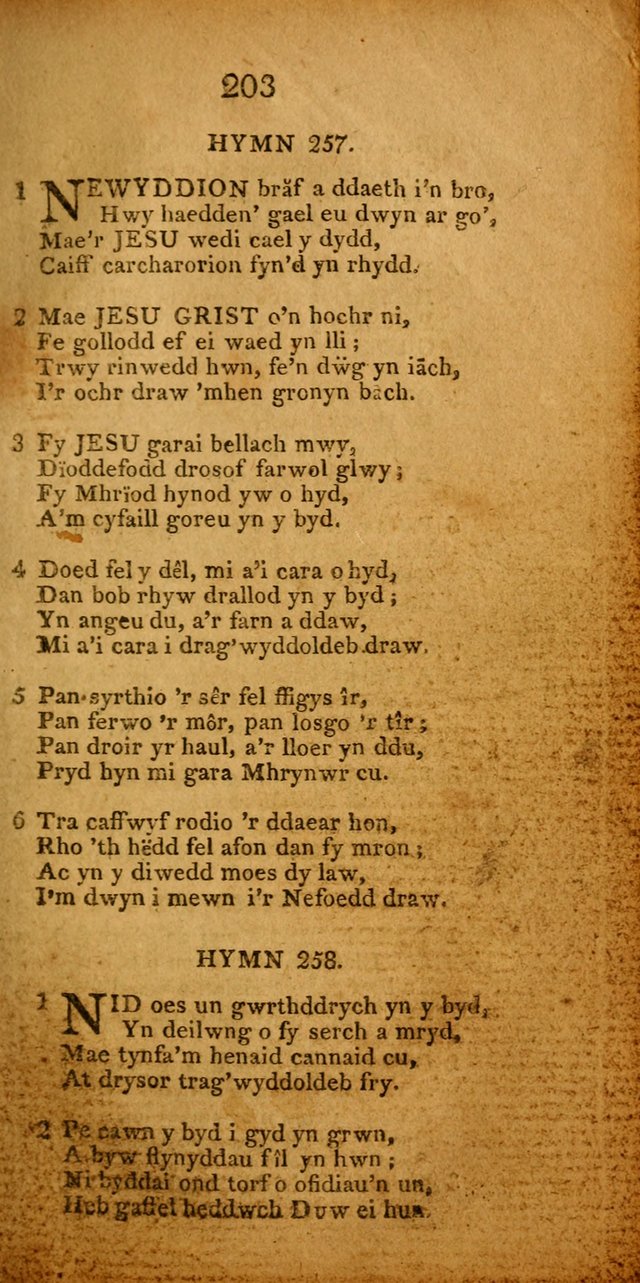 203
HYMN 257.
1 NEWYDDION brăf a ddaeth i'n bro,
Hwy haedden' gael eu dwyn ar go',
Mae'r JESU wedi cael y dydd,
Caiff carcharorion fyn'd yn rhydd.
2 Mae JESU GRIST o'n hochr ni,
Fe gollodd ef ei waed yn lli;
Trwy rinwedd hwn, fe'n dẅg yn iăch,
I'r ochr draw 'mhen gronyn băch.
3 Fy JESU garai bellach mwy,
Dïoddefodd drosof farwol glwy;
Fy Mhrïod hynod yw o hyd,
A'm cyfaill goreu yn y byd.
4 Doed fel y dêl, mi a'i cara o hyd,
Dan bob rhyw drallod yn y byd;
Yn angeu du, a'r farn a ddaw,
Mi a'i cara i drag'wyddoldeb draw.
5 Pan syrthio 'r sêr fel ffigys îr,
Pan ferwo 'r môr, pan losgo 'r tîr;
Pan droir yr haul, a'r lloer yn ddu,
Pryd hyn mi gara Mhrynwr cu.
6 Tra caffwyf rodio 'r ddaear hon,
Rho 'th hëdd fel afon dan fy mron;
Ac yn y diwedd moes dy law,
I'm dwyn i mewn i'r Nefoedd draw.
HYMN 258.
1 NID oes un gwrthddrych yn y byd,
Yn deilwng o fy serch a mryd,
Mae tynfa'm henaid cannaid cu,
At drysor trag'wyddoldeb fry.
2 Pe cawn y byd i gyd yn grwn,
A byw flynyddau fîl yn hwn;
Ni byddai ond torf o ofidiau'n un,
Heb gaffel heddwch Duw ei hun.